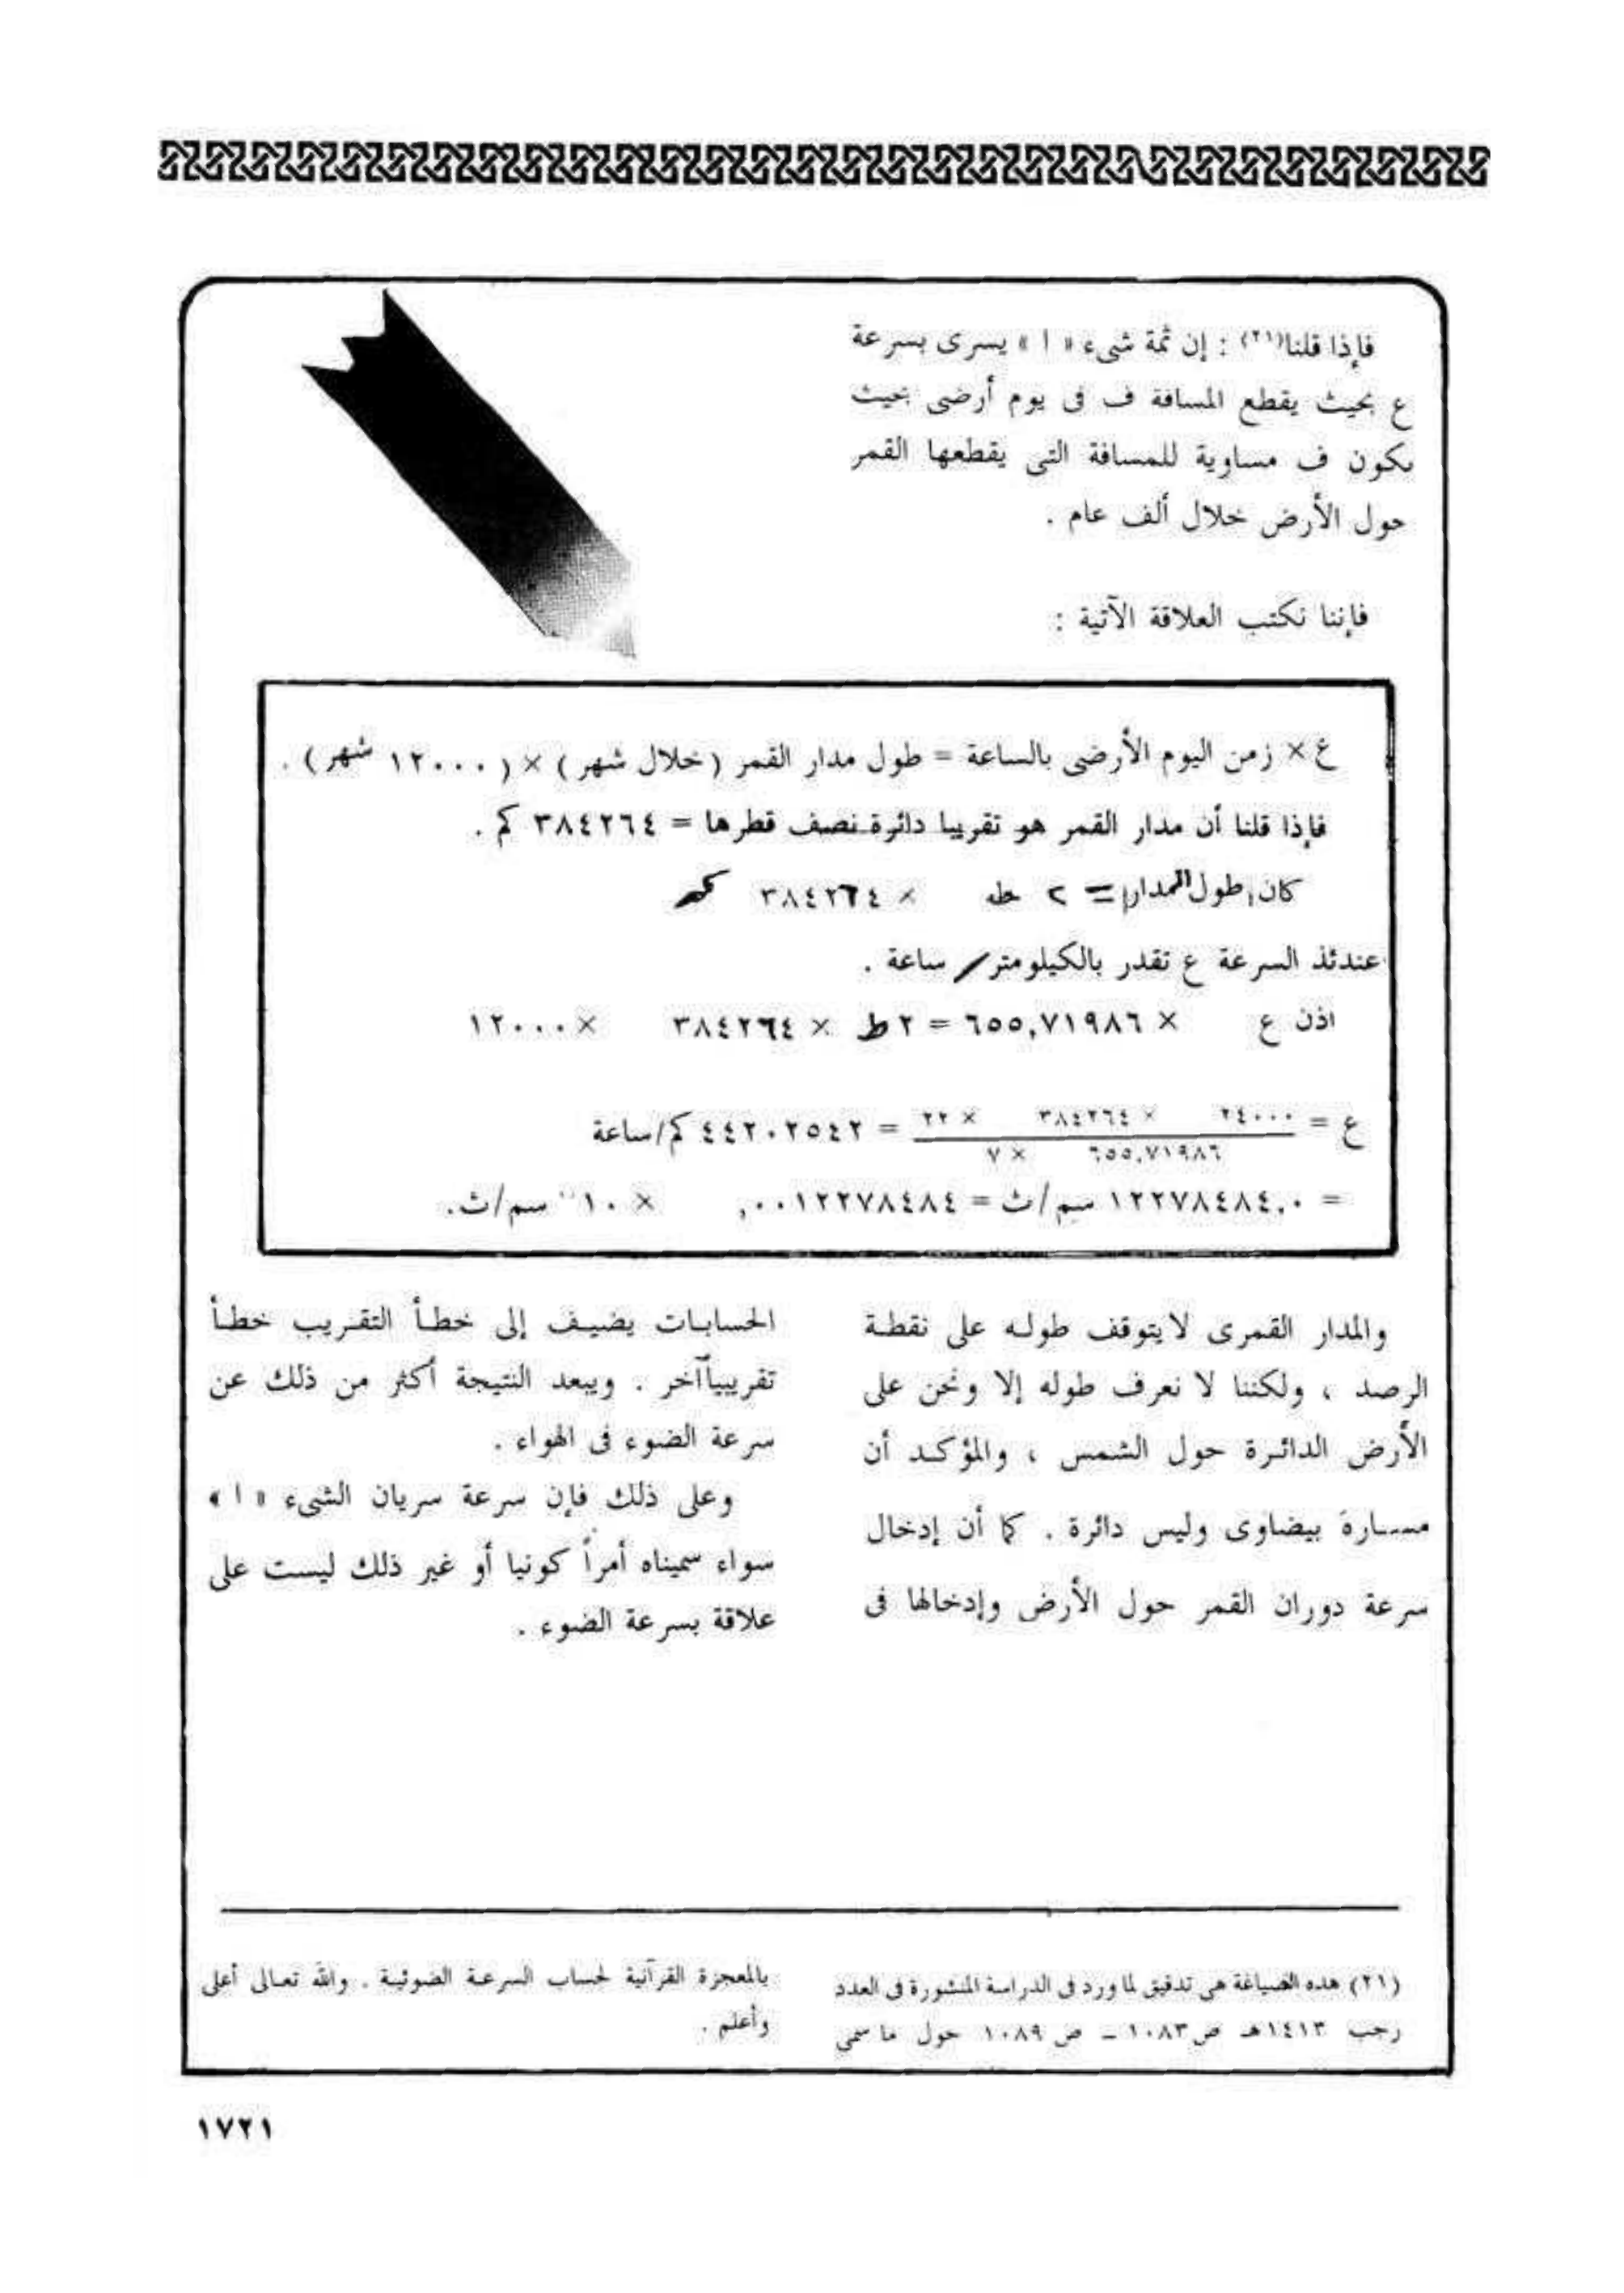 فإذا قلنا(٢١) : إن ثمة شىء « ا » يسرى بسرعة
ع بحيث يقطع المسافة ف فى يوم أرضى بحيث
تكون ف مساوية للمسافة التى يقطعها القمر
حول الأرض خلال ألف عام .
فإننا نكتب العلاقة الآتية :
ع × زمن اليوم الأرضى بالساعة = طول مدار القمر ( خلال شهر ) × ( ١٢٠٠٠ شهر ) .
فإذا قلنا أن مدار القمر هو تقريبا دائرة نصف قطرها = ٣٨٤٢٦٤ كم .
كان طول المدار = ٢ طـ × ٣٨٤٢٦٤ كم
عندئذ السرعة ع تقدر بالكيلومتر / ساعة .
اذن ع × ٦٥٥,٧١٩٨٦ = ٢ ط × ٣٨٤٢٦٤ × ١٢٠٠٠
ع = ٢٤٠٠٠ × ٣٨٤٢٦٤ × ٢٢ = ٤٤٢٠٢٥٤٢ كم/ساعة
٦٥٥,٧١٩٨٦ × ٧
= ١٢٢٧٨٤٨٤,٠ سم/ث = ,٠٠١٢٢٧٨٤٨٤ × ١٠ سم/ث.
والمدار القمرى لا يتوقف طوله على نقطة
الرصد ، ولكننا لا نعرف طوله إلا ونحن على
الأرض الدائرة حول الشمس ، والمؤكد أن
مسارة بيضاوى وليس دائرة . كما أن إدخال
سرعة دوران القمر حول الأرض وإدخالها فى
الحسابات يضيف إلى خطأ التقريب خطأ
تقريبياً آخر . ويبعد النتيجة أكثر من ذلك عن
سرعة الضوء فى الهواء .
وعلى ذلك فإن سرعة سريان الشىء « ا »
سواء سميناه أمراً كونيا أو غير ذلك ليست على
علاقة بسرعة الضوء .
(٢١) هذه الصياغة هى تدقيق لما ورد فى الدراسة المنشورة فى العدد
رجب ١٤١٣هـ ص ١٠٨٣ – ص ١٠٨٩ حول ما سمى
بالمعجزة القرآنية لحساب السرعة الضوئية . والله تعالى أعلى
وأعلم .
١٧٢١